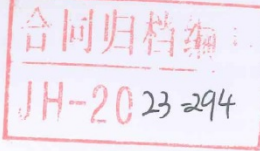 合同归档编
JH-2023-294